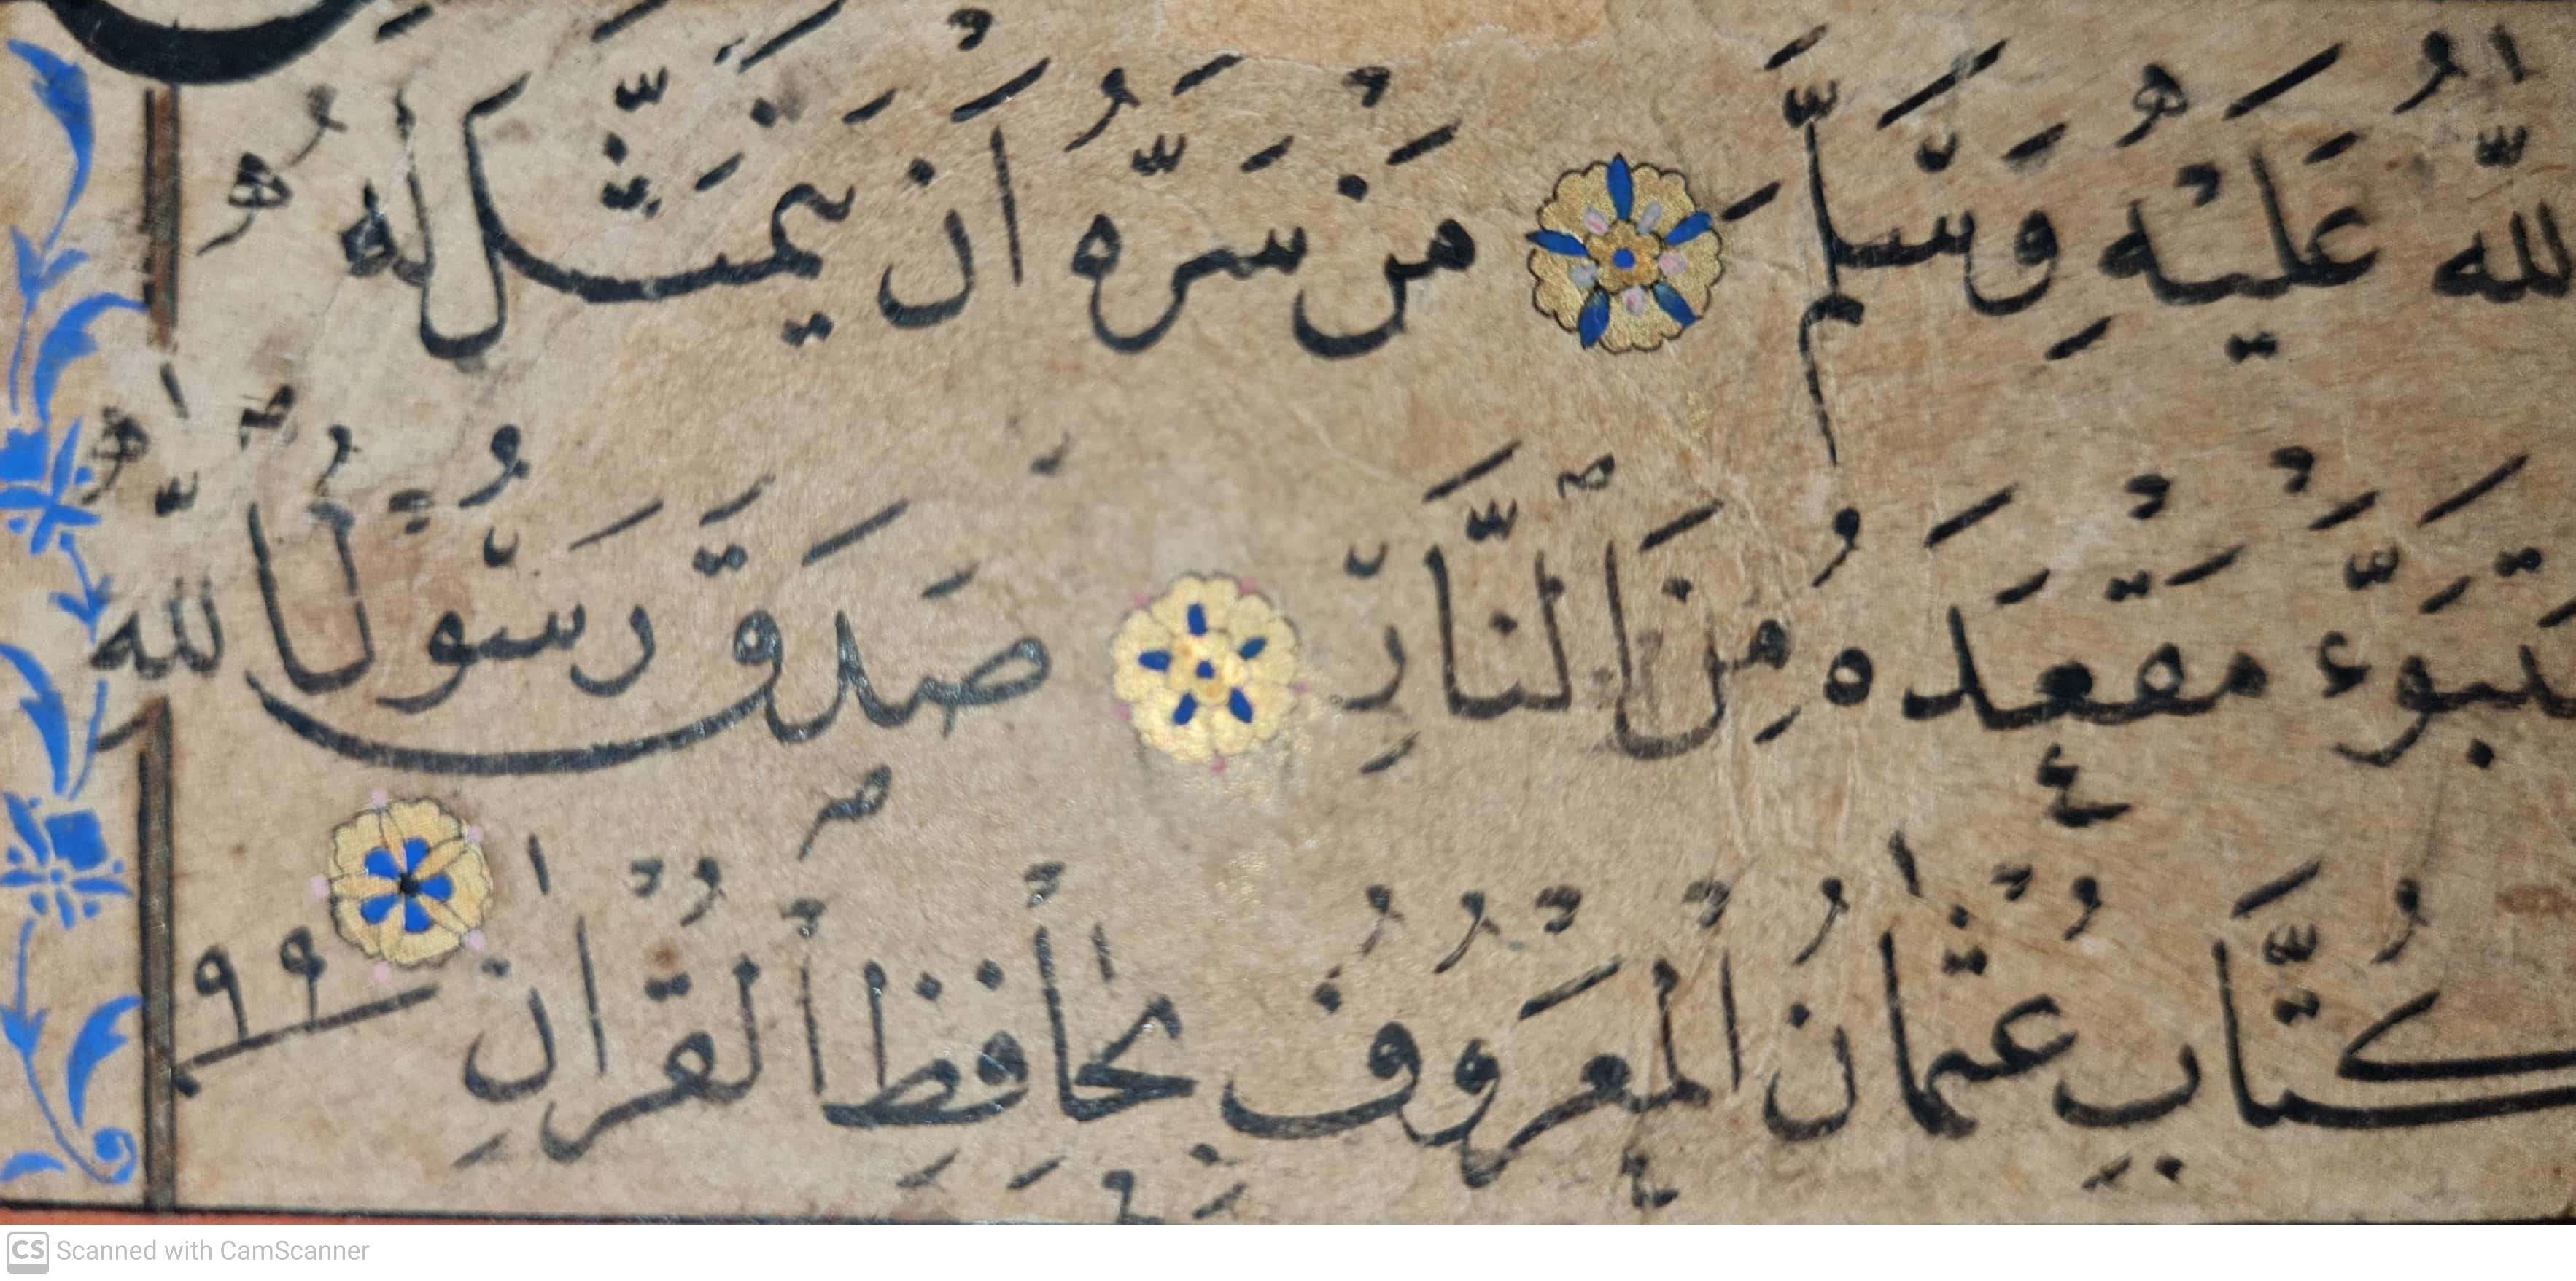 لله عَلَيْهِ وَسَلَّمَ مَنْ سَرَّهُ اَنْ يَتَمَثَّلَ لَهُ
تَبَوَّءْ مَقْعَدَهُ مِنَ النَّارِ صَدَقَ رَسُولُ اللّٰهِ
كُتَّابِ عُثْمٰانُ الْمَعْرُوفُ بِحَافِظِ الْقُرْاٰنِ ٩٩
Scanned with CamScanner